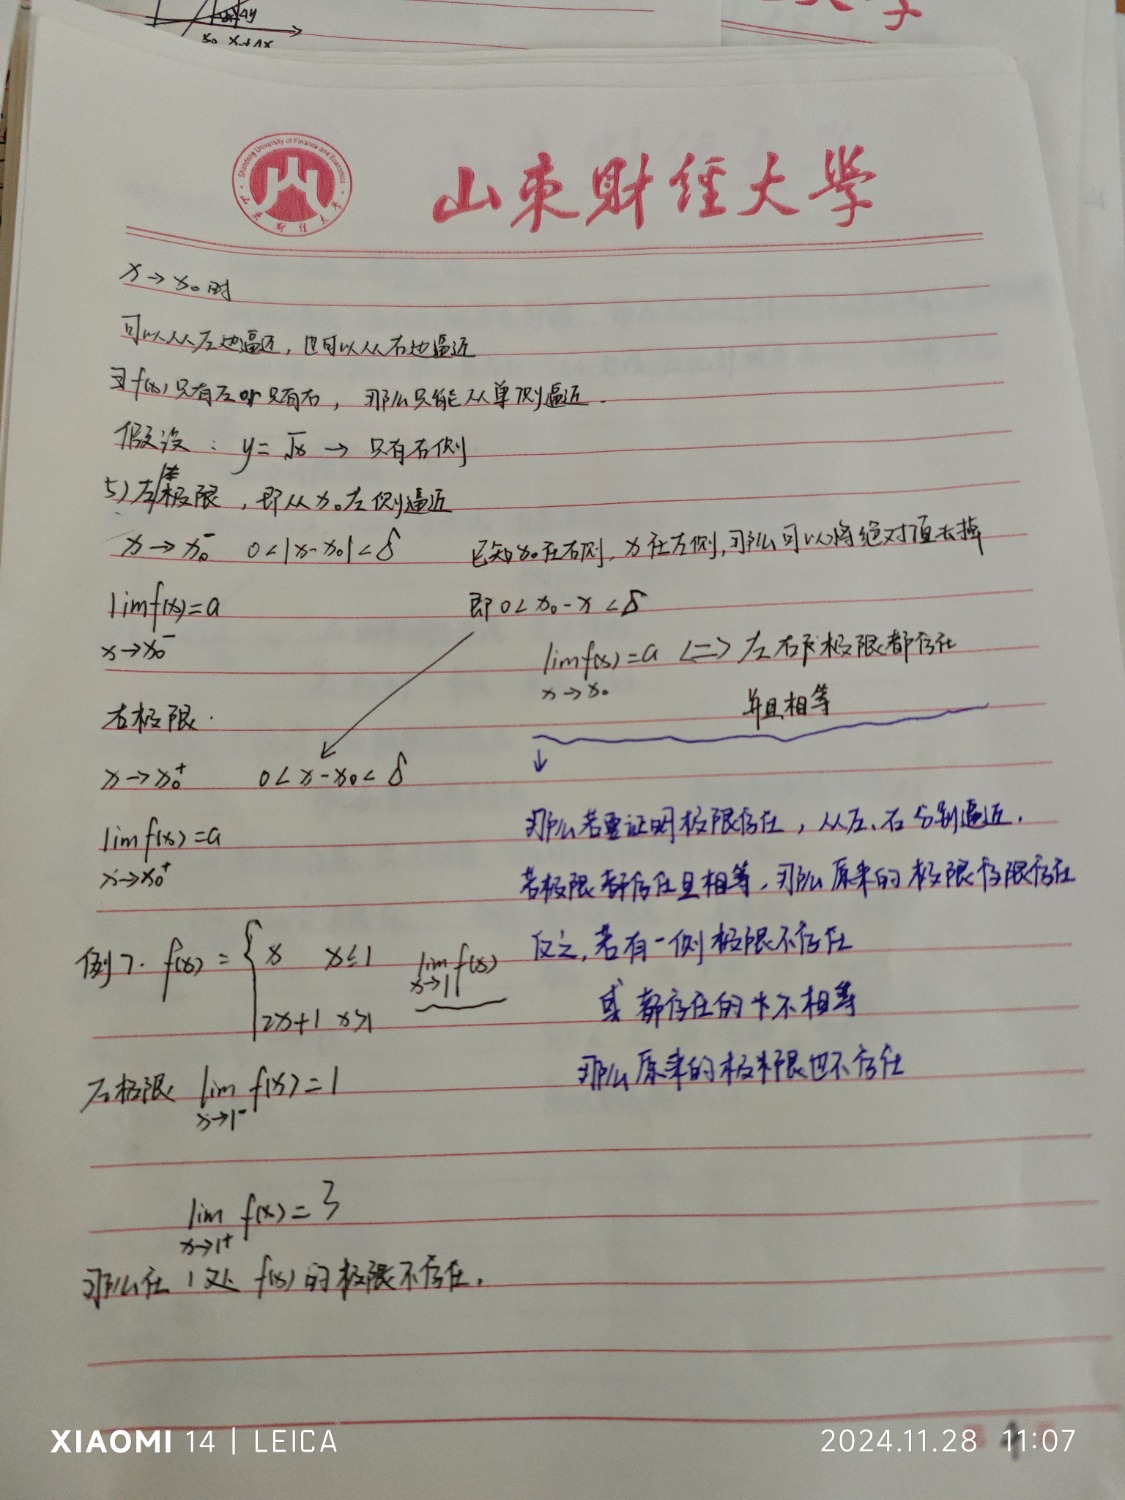 山东财经大学
Shandong University of Finance and Economics
x→x₀时
可以从左边逼近，也可以从右边逼近
习f(x)只有左or只有右，那么只能从单侧逼近.
假设：y=√x → 只有右侧
5)左极限，即从x₀左侧逼近
x→x₀⁻ 0<|x-x₀|<δ 已知x₀在右侧，x在左侧，那么可以将绝对值去掉
lim f(x)=a 即0<x₀-x<δ
x→x₀⁻
lim f(x)=a <=> 左右极限都存在
x→x₀
并且相等
右极限.
x→x₀⁺ 0<x-x₀<δ
lim f(x)=a
x→x₀⁺
那么若要证明极限存在，从左、右分别逼近.
若极限都存在且相等，那么原来的极限存限存在
反之，若有一侧极限不存在
或都存在的卡不相等
那么原来的极限也不存在
例7. f(x)={x x≤1 lim f(x)
x→1
2x+1 x>1
左极限 lim f(x)=1
x→1⁻
lim f(x)=3
x→1⁺
那么在1处f(x)的极限不存在.
XIAOMI 14 | LEICA
2024.11.28 11:07